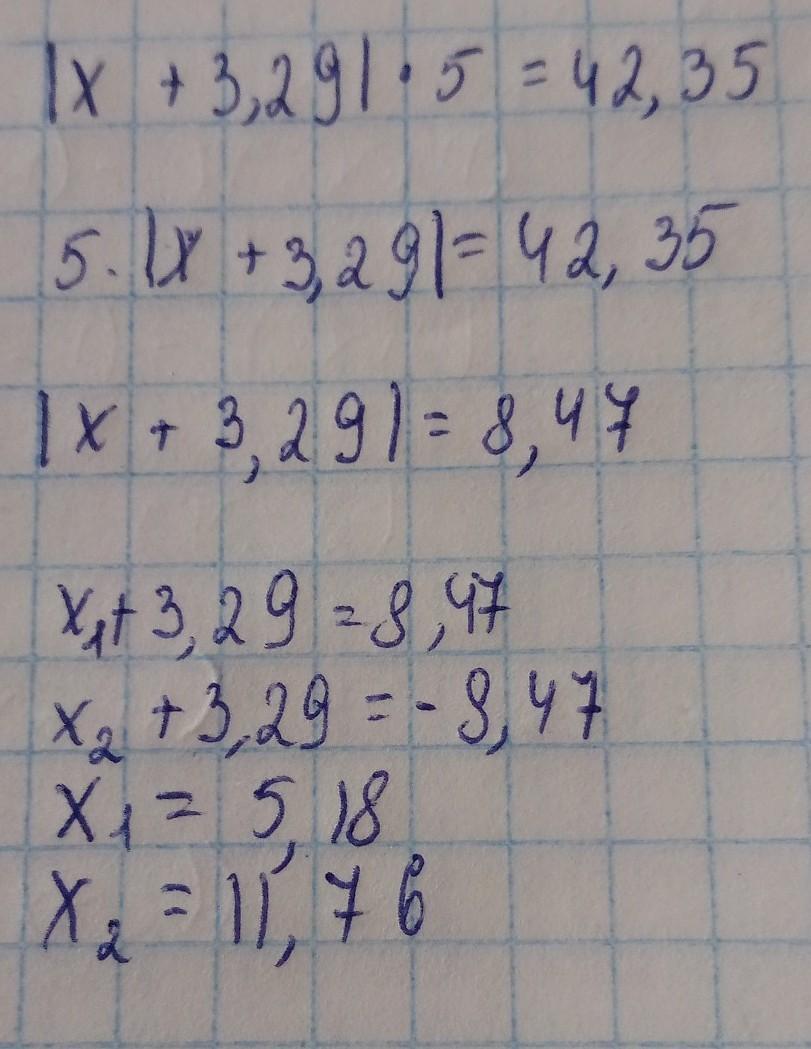 |x + 3,29| · 5 = 42,35
5 · |x + 3,29| = 42,35
|x + 3,29| = 8,47
x₁ + 3,29 = 8,47
x₂ + 3,29 = - 8,47
x₁ = 5,18
x₂ = 11,76